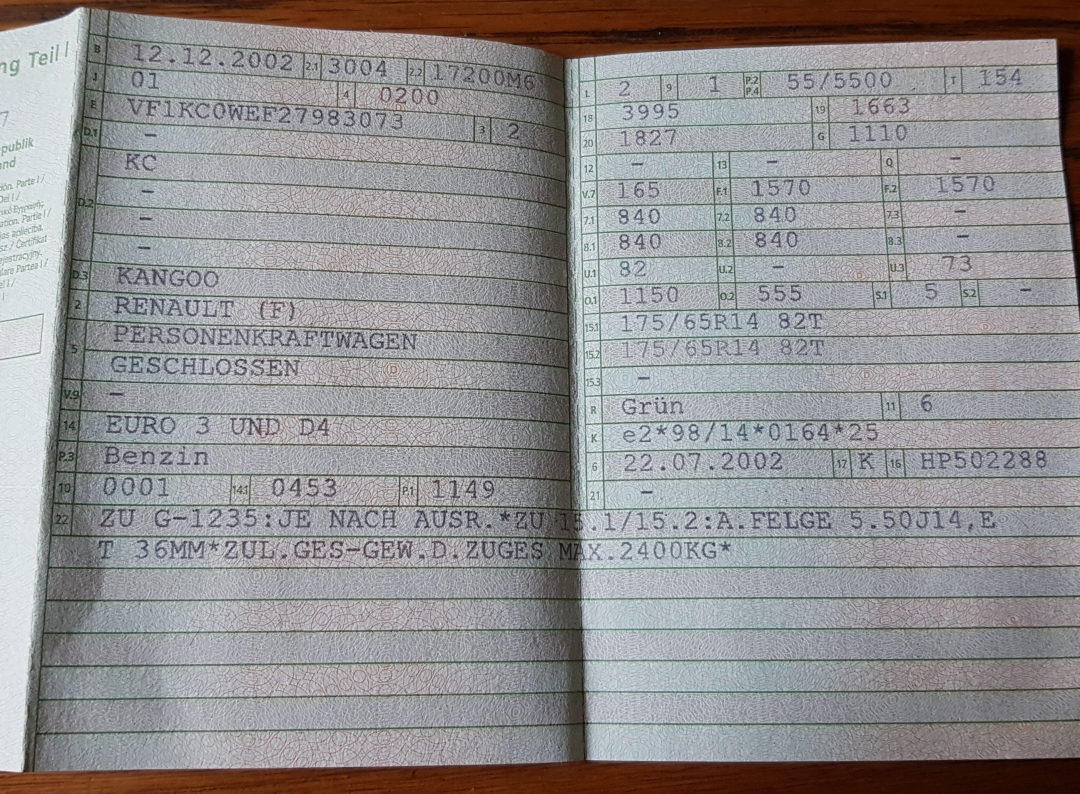 ng Teil I
7
publik
and
B 12.12.2002 2.1 3004 2.2 17200M6
J 01 4 0200
E VF1KC0WEF27983073 3 2
D.1 –
KC
–
D.2 –
–
D.3 KANGOO
2 RENAULT (F)
5 PERSONENKRAFTWAGEN
GESCHLOSSEN
V.9 –
14 EURO 3 UND D4
P.3 Benzin
10 0001 14.1 0453 P.1 1149
L 2 9 1 P.2 P.4 55/5500 T 154
18 3995 19 1663
20 1827 G 1110
12 – 13 – Q –
V.7 165 F.1 1570 F.2 1570
7.1 840 7.2 840 7.3 –
8.1 840 8.2 840 8.3 –
U.1 82 U.2 – U.3 73
O.1 1150 O.2 555 S.1 5 S.2 –
15.1 175/65R14 82T
15.2 175/65R14 82T
15.3 –
R Grün 11 6
K e2*98/14*0164*25
6 22.07.2002 17 K 16 HP502288
21 –
22 ZU G-1235:JE NACH AUSR.*ZU 15.1/15.2:A.FELGE 5.50J14,E
T 36MM*ZUL.GES-GEW.D.ZUGES MAX.2400KG*